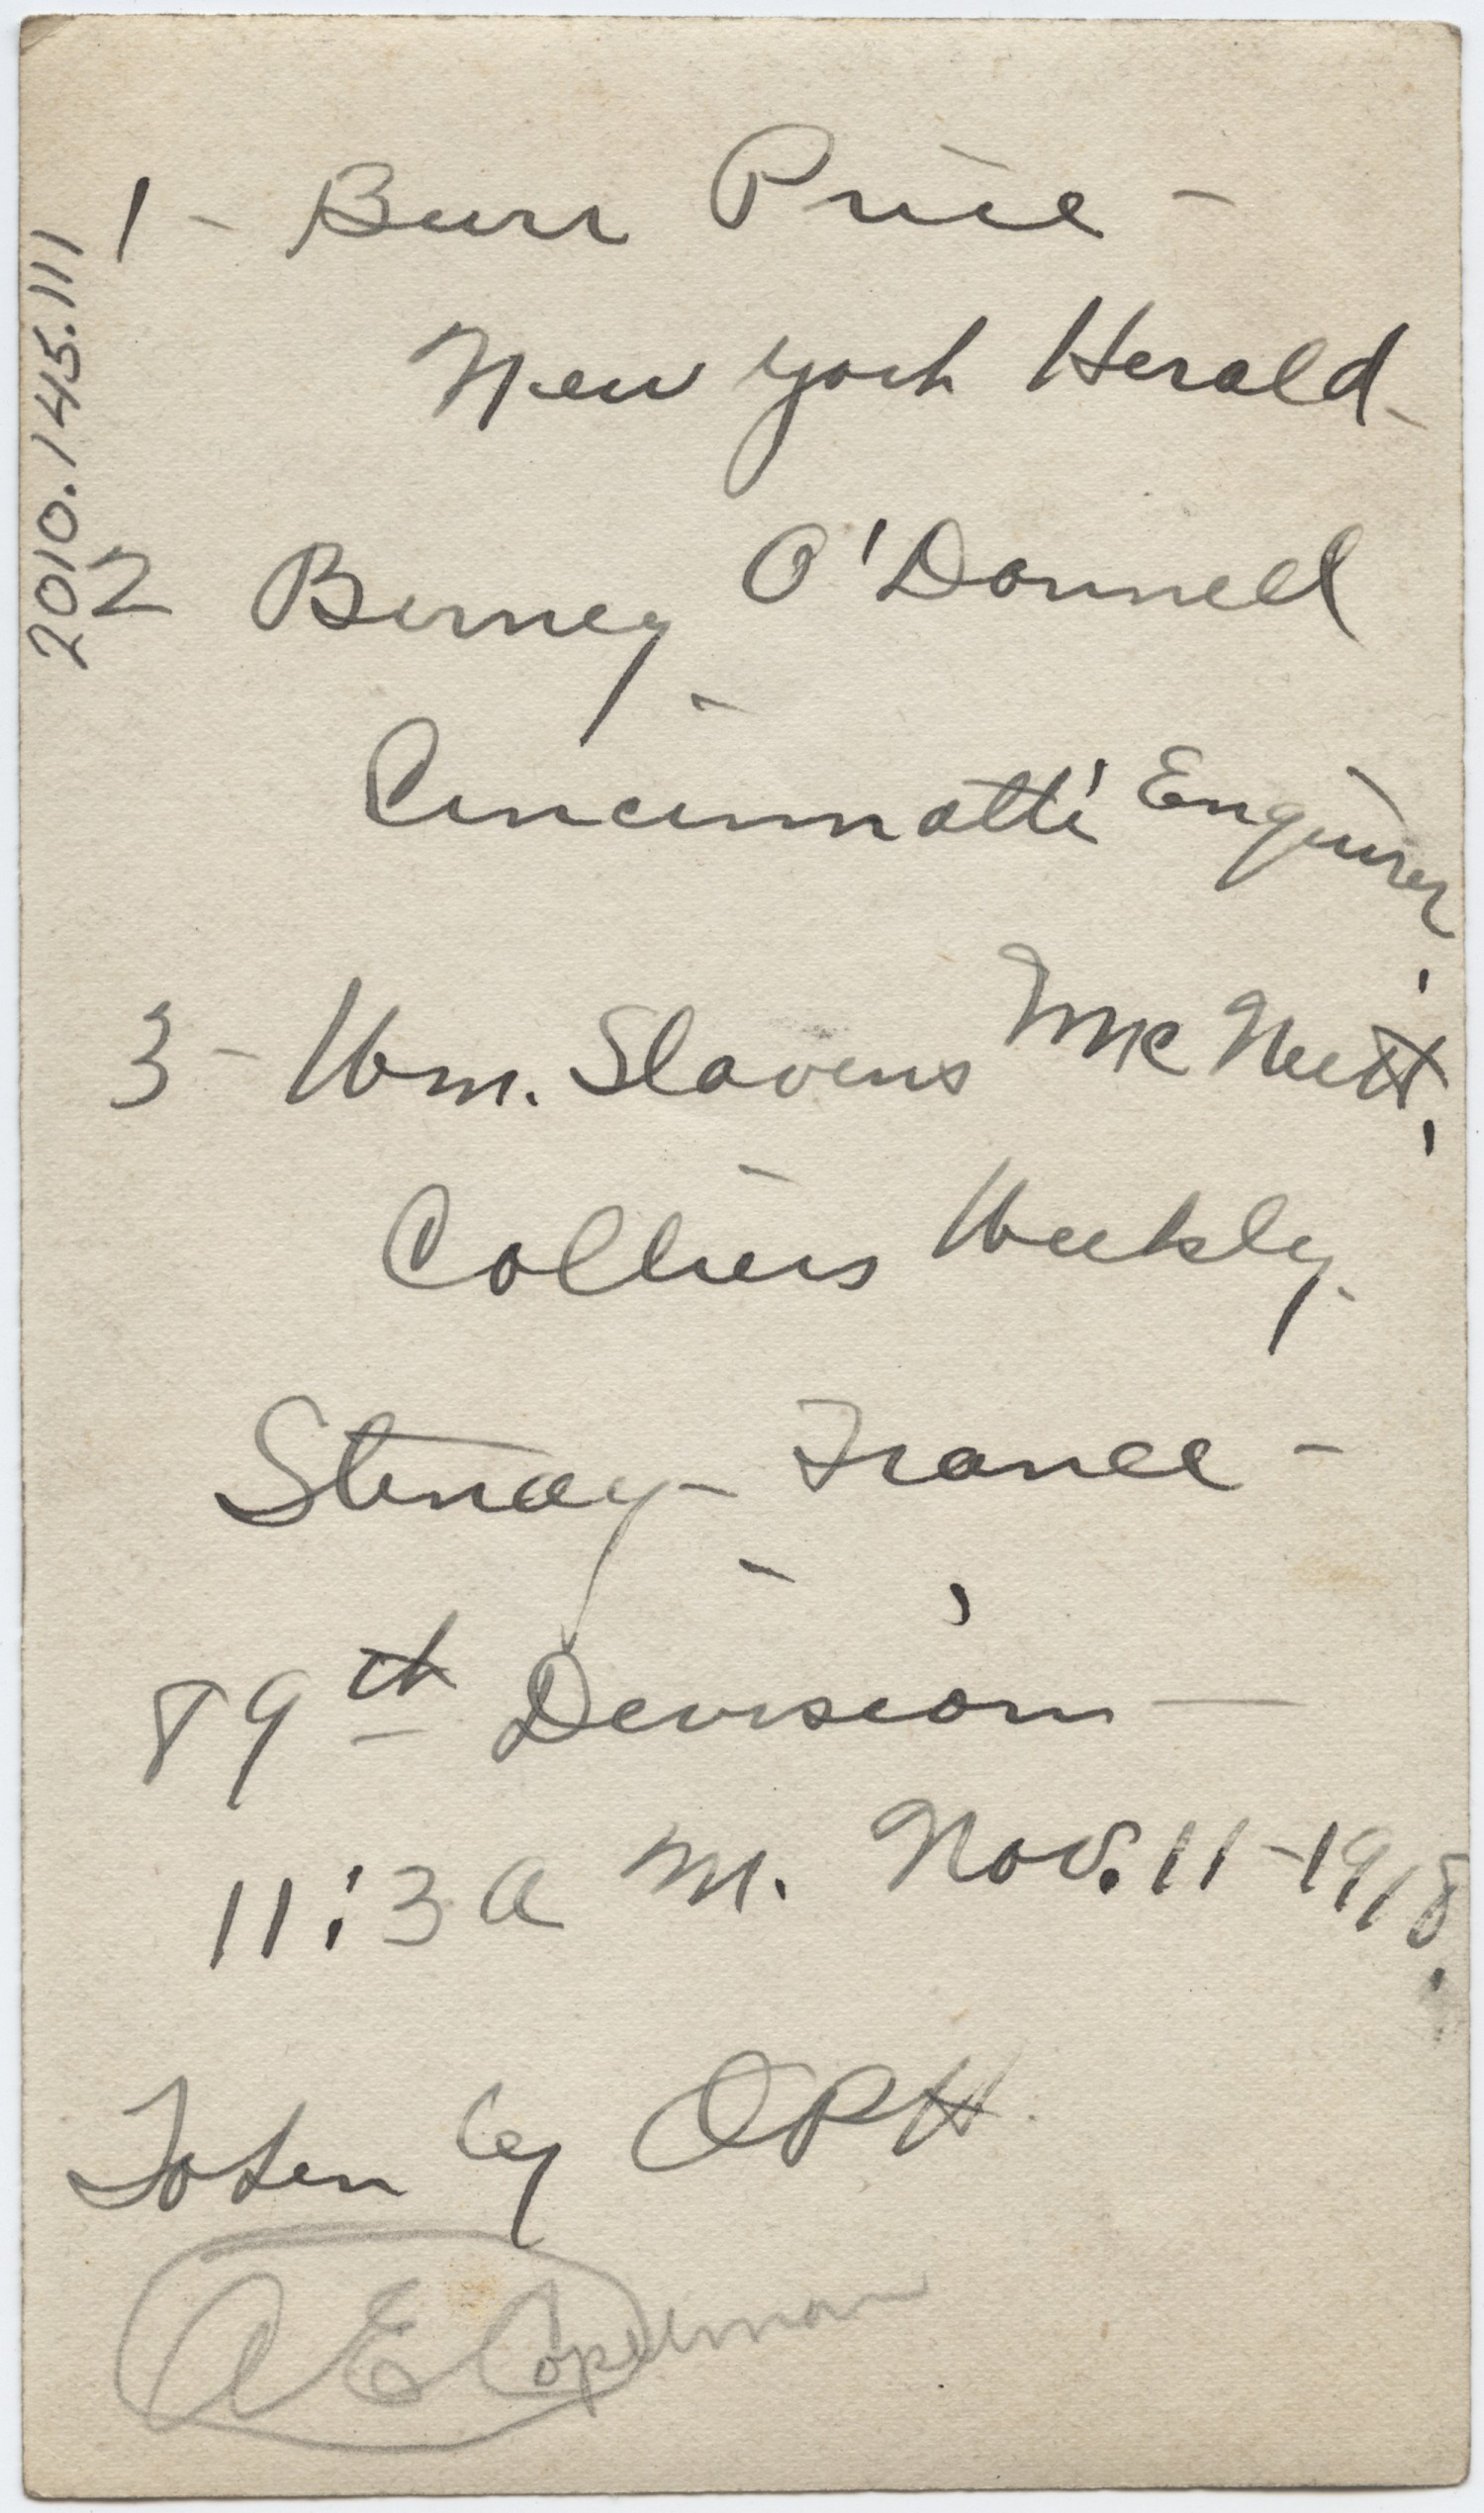 2010.145.111
1 - Burr Price -
New York Herald -
2 Berney O'Donnell -
Cincinnatti Enquirer
3 - Wm. Slavens McNutt,
Colliers Weekly -
Stenay - France -
89th Division -
11:3 a m. Nov. 11 - 1918.
Taken by OPH
A E Copelman